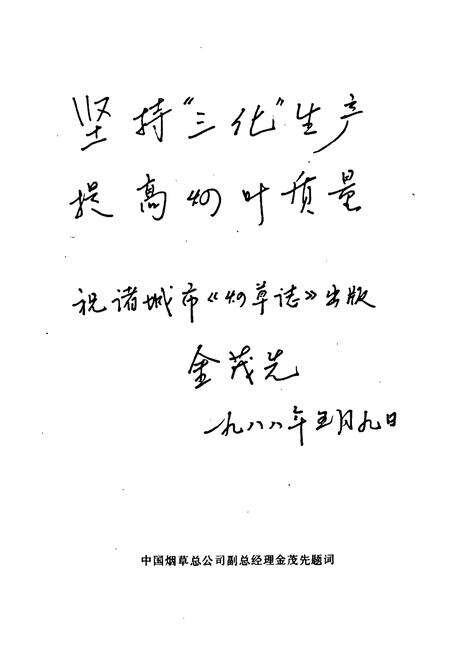 坚持“三化”生产
提高烟叶质量
祝诸城市《烟草誌》出版
金茂先
一九八八年五月九日
中国烟草总公司副总经理金茂先题词